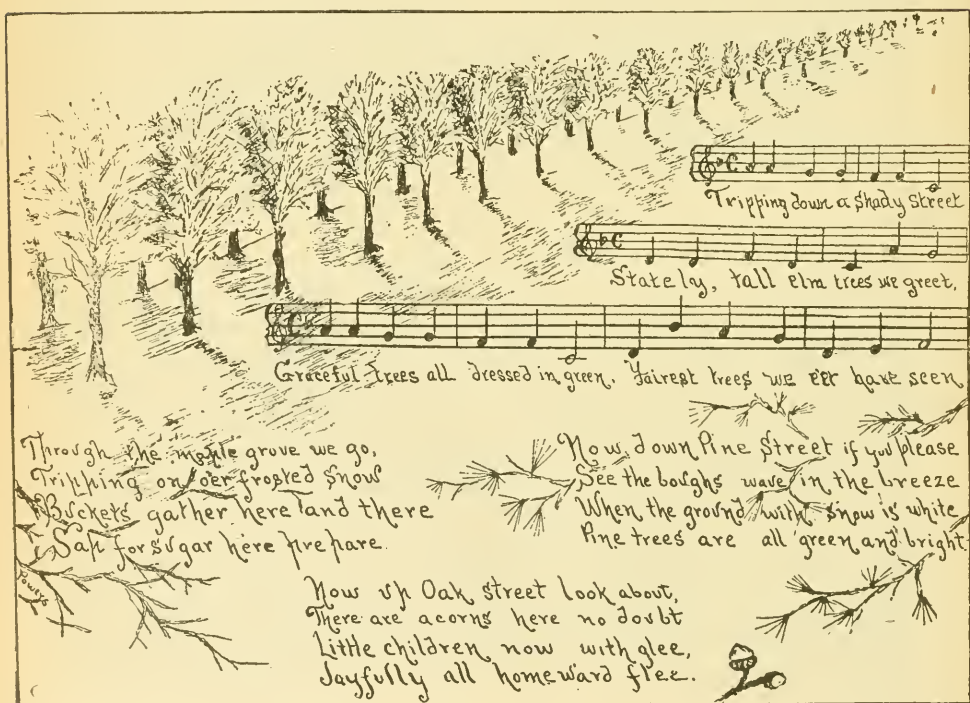 Tripping down a shady street
Stately, tall elm trees we greet,
Graceful trees all dressed in green, Fairest trees we e'er have seen
Through the maple grove we go,
Tripping on o'er frosted snow
Buckets gather here and there
Sap for sugar here prepare.
Now down Pine Street if you please
See the boughs wave in the breeze
When the ground with snow is white
Pine trees are all green and bright.
Now up Oak street look about,
There are acorns here no doubt
Little children now with glee,
Joyfully all homeward flee.
Powers